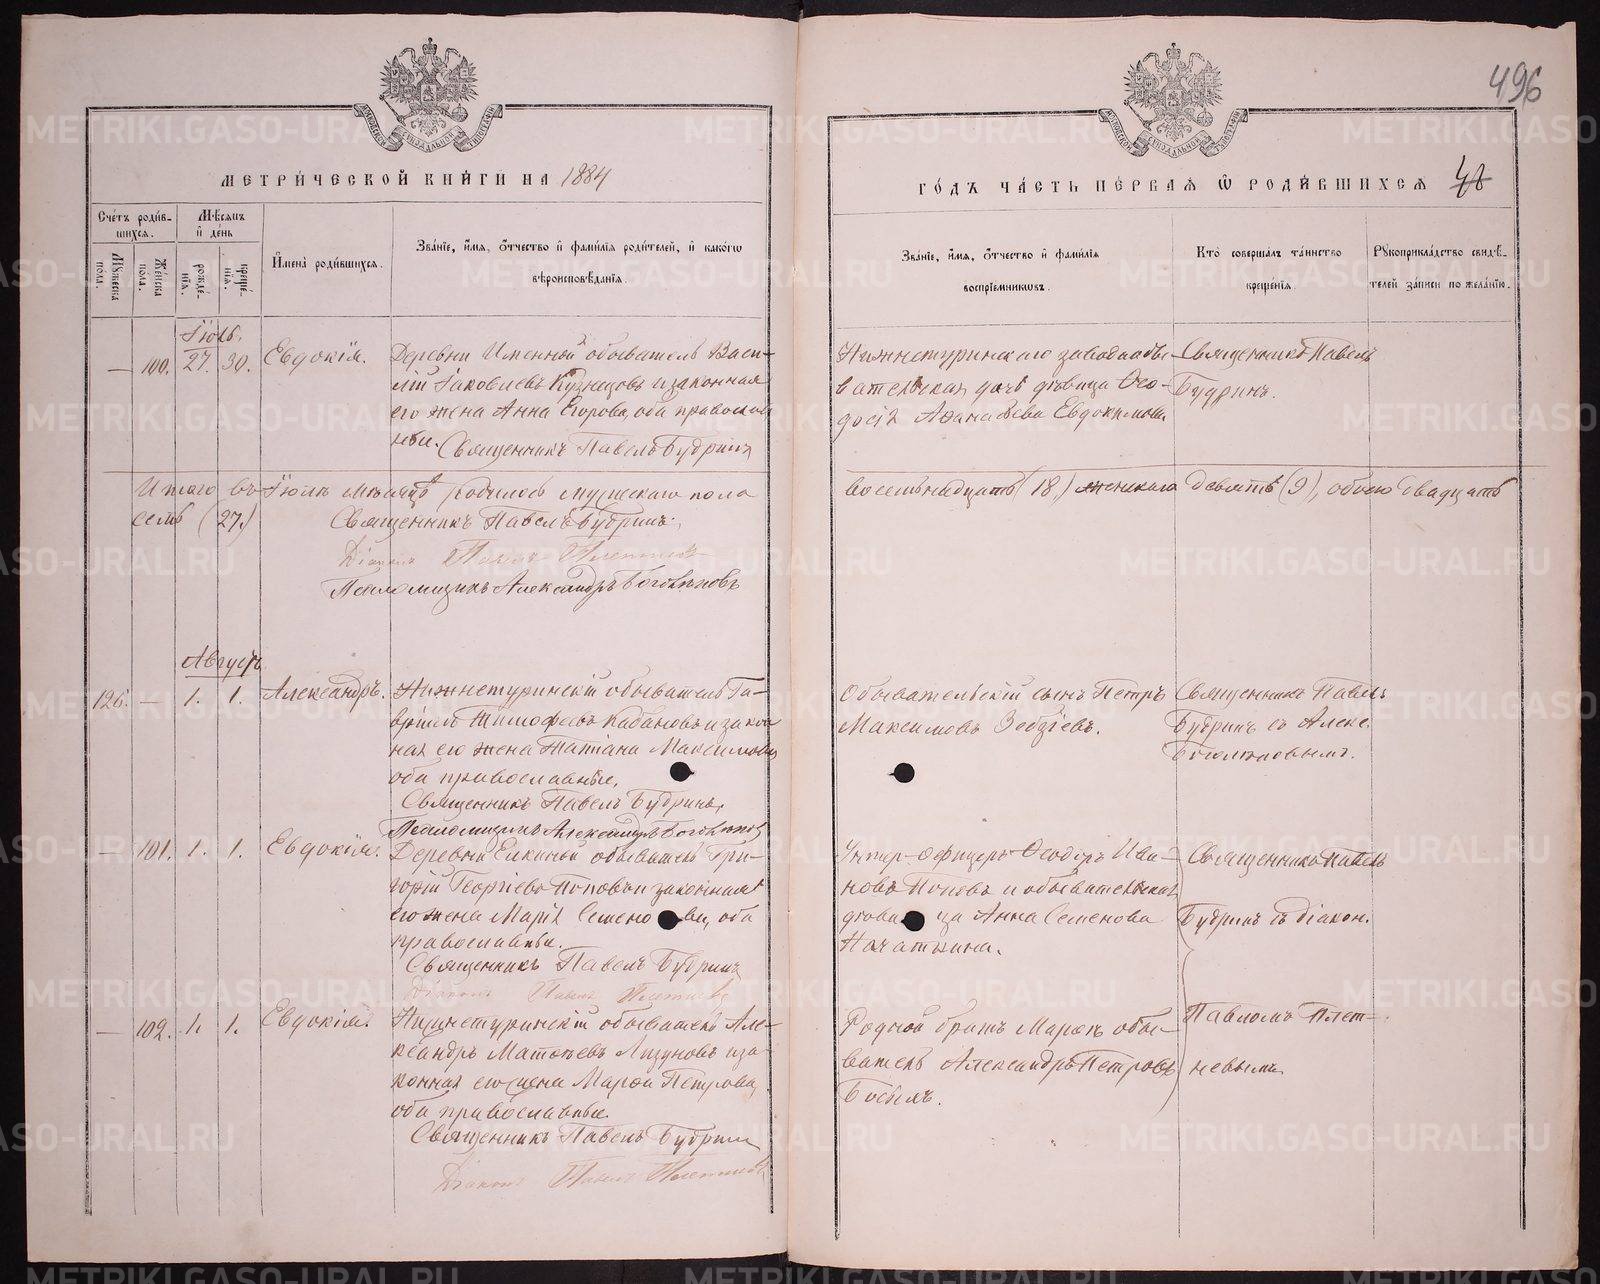 496
МЕТРИ́ЧЕСКОЙ КНИ́ГИ НА 1884
ГО́ДЪ ЧА́СТЬ ПЕ́РВАЯ Ѽ РОДИ́ВШИХСЯ 48
Сче́тъ роди́в-
шихся.
Му́жеска по́ла.
Же́нска по́ла.
Мѣ́сяцъ
и҆ де́нь
рожде́-
нїя.
креще́-
нїя.
И҆мена̀ роди́вшихся.
Зва́нїе, и҆́мя, ѻ҆́тчество и҆ фами́лїя роди́телей, и҆ како́гѡ
вѣроисповѣ́данїя.
Зва́нїе, и҆́мя, ѻ҆́тчество и҆ фами́лїя
воспрїе́мниковъ.
Кто̀ соверша́лъ та́инство
креще́нїя.
Рꙋкоприкла́дство свидѣ́-
телей за́писи по жела́нїю.
Іюль.
— 100. 27. 30. Евдокія.
Деревни Именной обыватель Васи-
лій Іаковлевъ Кузнецовъ и законная
его жена Анна Егорова, оба православ
ные.
Священникъ Павелъ Будринъ
Нижнетуринскаго завода обы-
вательская дочь дѣвица Ѳео-
досія Аѳанасьева Евдокимова
Священникъ Павелъ
Будринъ.
Итого въ Іюлѣ мѣсяцѣ родилось мужескаго пола восемьнадцать (18.) женскаго девять (9), обоего двадцать
семь (27.)
Священникъ Павелъ Будринъ.
Діаконъ Павелъ Плетневъ
Псаломщикъ Александръ Боголѣповъ
Августъ
126. — 1. 1. Александръ.
Нижнетуринскій обыватель Га-
вріилъ Тимофеевъ Кабановъ и закон
ная его жена Татіана Максимова
оба православные.
Священникъ Павелъ Будринъ.
Псаломщикъ Александръ Боголѣповъ
Обывательскій сынъ Петръ
Максимовъ
Священникъ Павелъ
Будринъ съ Алекс.
Боголѣповымъ.
— 101. 1. 1. Евдокія.
Деревни Елкиной обыватель Гри-
горій Георгіевъ Поповъ и законная
его жена Марія Семенова, оба
православные.
Священникъ Павелъ Будринъ
Діаконъ Павелъ Плетневъ
Унтер-Офицеръ Ѳеодоръ Ива-
новъ Поповъ и обывательская
дѣвица Анна Семенова
Священникъ Павелъ
Будринъ съ діакон.
— 102. 1. 1. Евдокія.
Нижнетуринскій обыватель Але-
ксандръ Матѳеевъ Лизуновъ и за-
конная его жена Марѳа Петрова,
оба православные.
Священникъ Павелъ Будринъ
Діаконъ Павелъ Плетневъ
Родной братъ Марѳы обы-
ватель Александръ Петровъ
Босыхъ.
Павломъ Плет-
невымъ
METRIKI.GASO-URAL.RU